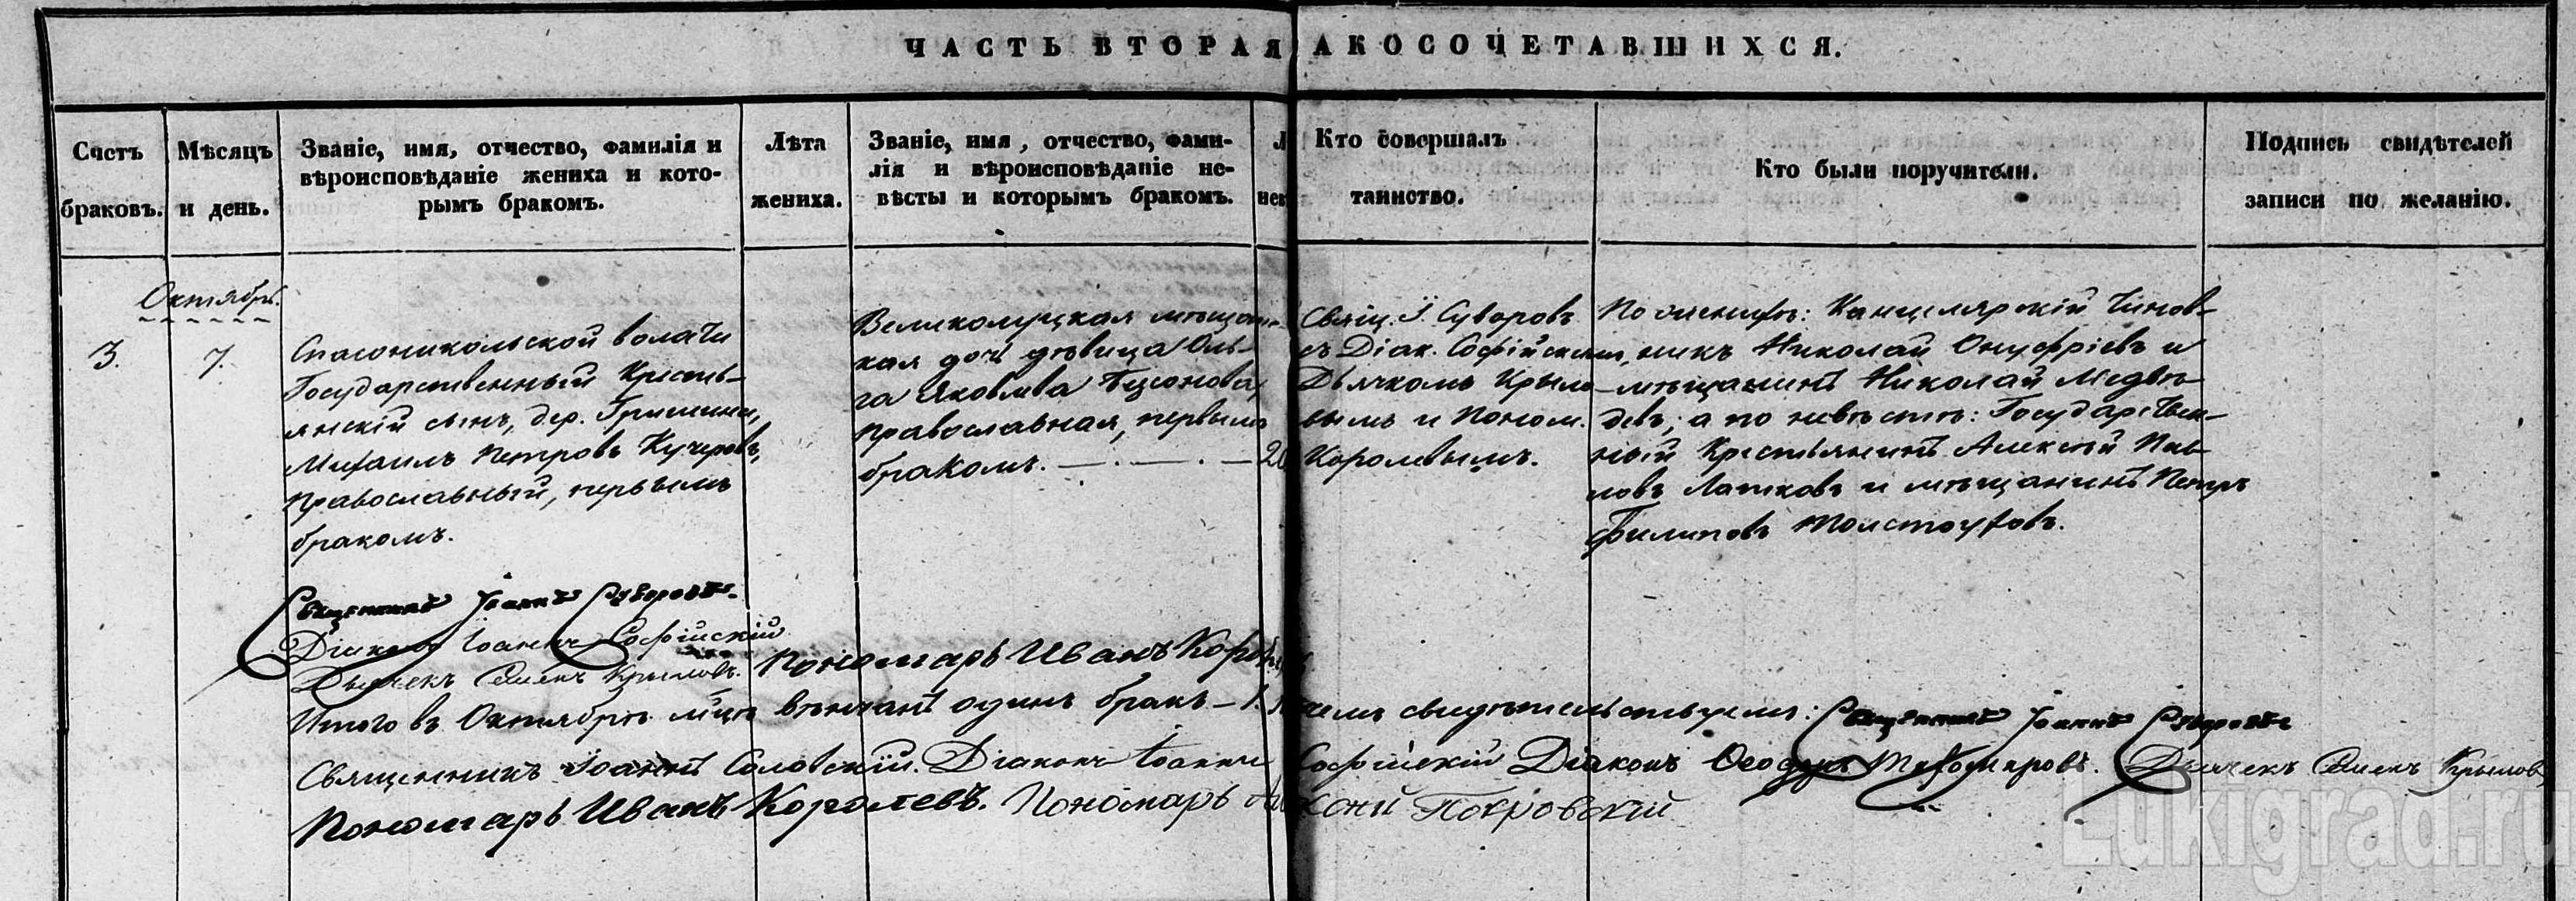 ЧАСТЬ ВТОРАЯ АКОСОЧЕТАВШИХСЯ.
Счетъ браковъ.
Мѣсяцъ и день.
Званіе, имя, отчество, фамилія и
вѣроисповѣданіе жениха и кото-
рымъ бракомъ.
Лѣта
жениха.
Званіе, имя, отчество, фами-
лія и вѣроисповѣданіе не-
вѣсты и которымъ бракомъ.
Л
нев
Кто совершалъ
таинство.
Кто были поручители.
Подпись свидѣтелей
записи по желанію.
Октябрь.
3.
7.
Спасоникольской волости
Государственный Кресть-
янскій сынъ, дер. Гришини,
Михаилъ Петровъ Кучеровъ,
православный, первымъ
бракомъ.
Великолуцкая мѣщан-
кая дочь дѣвица Оль-
га Яковлева
православная, первымъ
бракомъ. — . — . — 20
Свящ. І. Суворовъ
съ Діак. Софійскимъ,
Дьячкомъ Крыло-
вымъ и Поном.
Королевымъ.
По женихѣ: Канцелярскій Чинов-
никъ Николай Онуфріевъ и
мѣщанинъ Николай Медвѣ-
девъ; а по невѣстѣ: Государствен-
ный Крестьянинъ Алексѣй Пав-
ловъ Латковъ и мѣщанинъ Петръ
Филиповъ Толстоуховъ.
Священникъ Іоаннъ Суворовъ.
Діаконъ Іоаннъ Софійскій
Дьячекъ Семенъ Крыловъ. Пономарь Иванъ Коро
Итого въ Октябрѣ м̃цѣ вѣнчанъ одинъ бракъ — 1. чемъ свидѣтельствуемъ: Священникъ Іоаннъ Суворовъ
Священникъ Іоаннъ Соловскій. Діаконъ Іоаннъ Софійскій Діаконъ Ѳеодуръ Тихомировъ. Дьячекъ Семенъ Крыловъ
Пономарь Иванъ Королевъ. Пономарь Покровскій
Lukigrad.ru